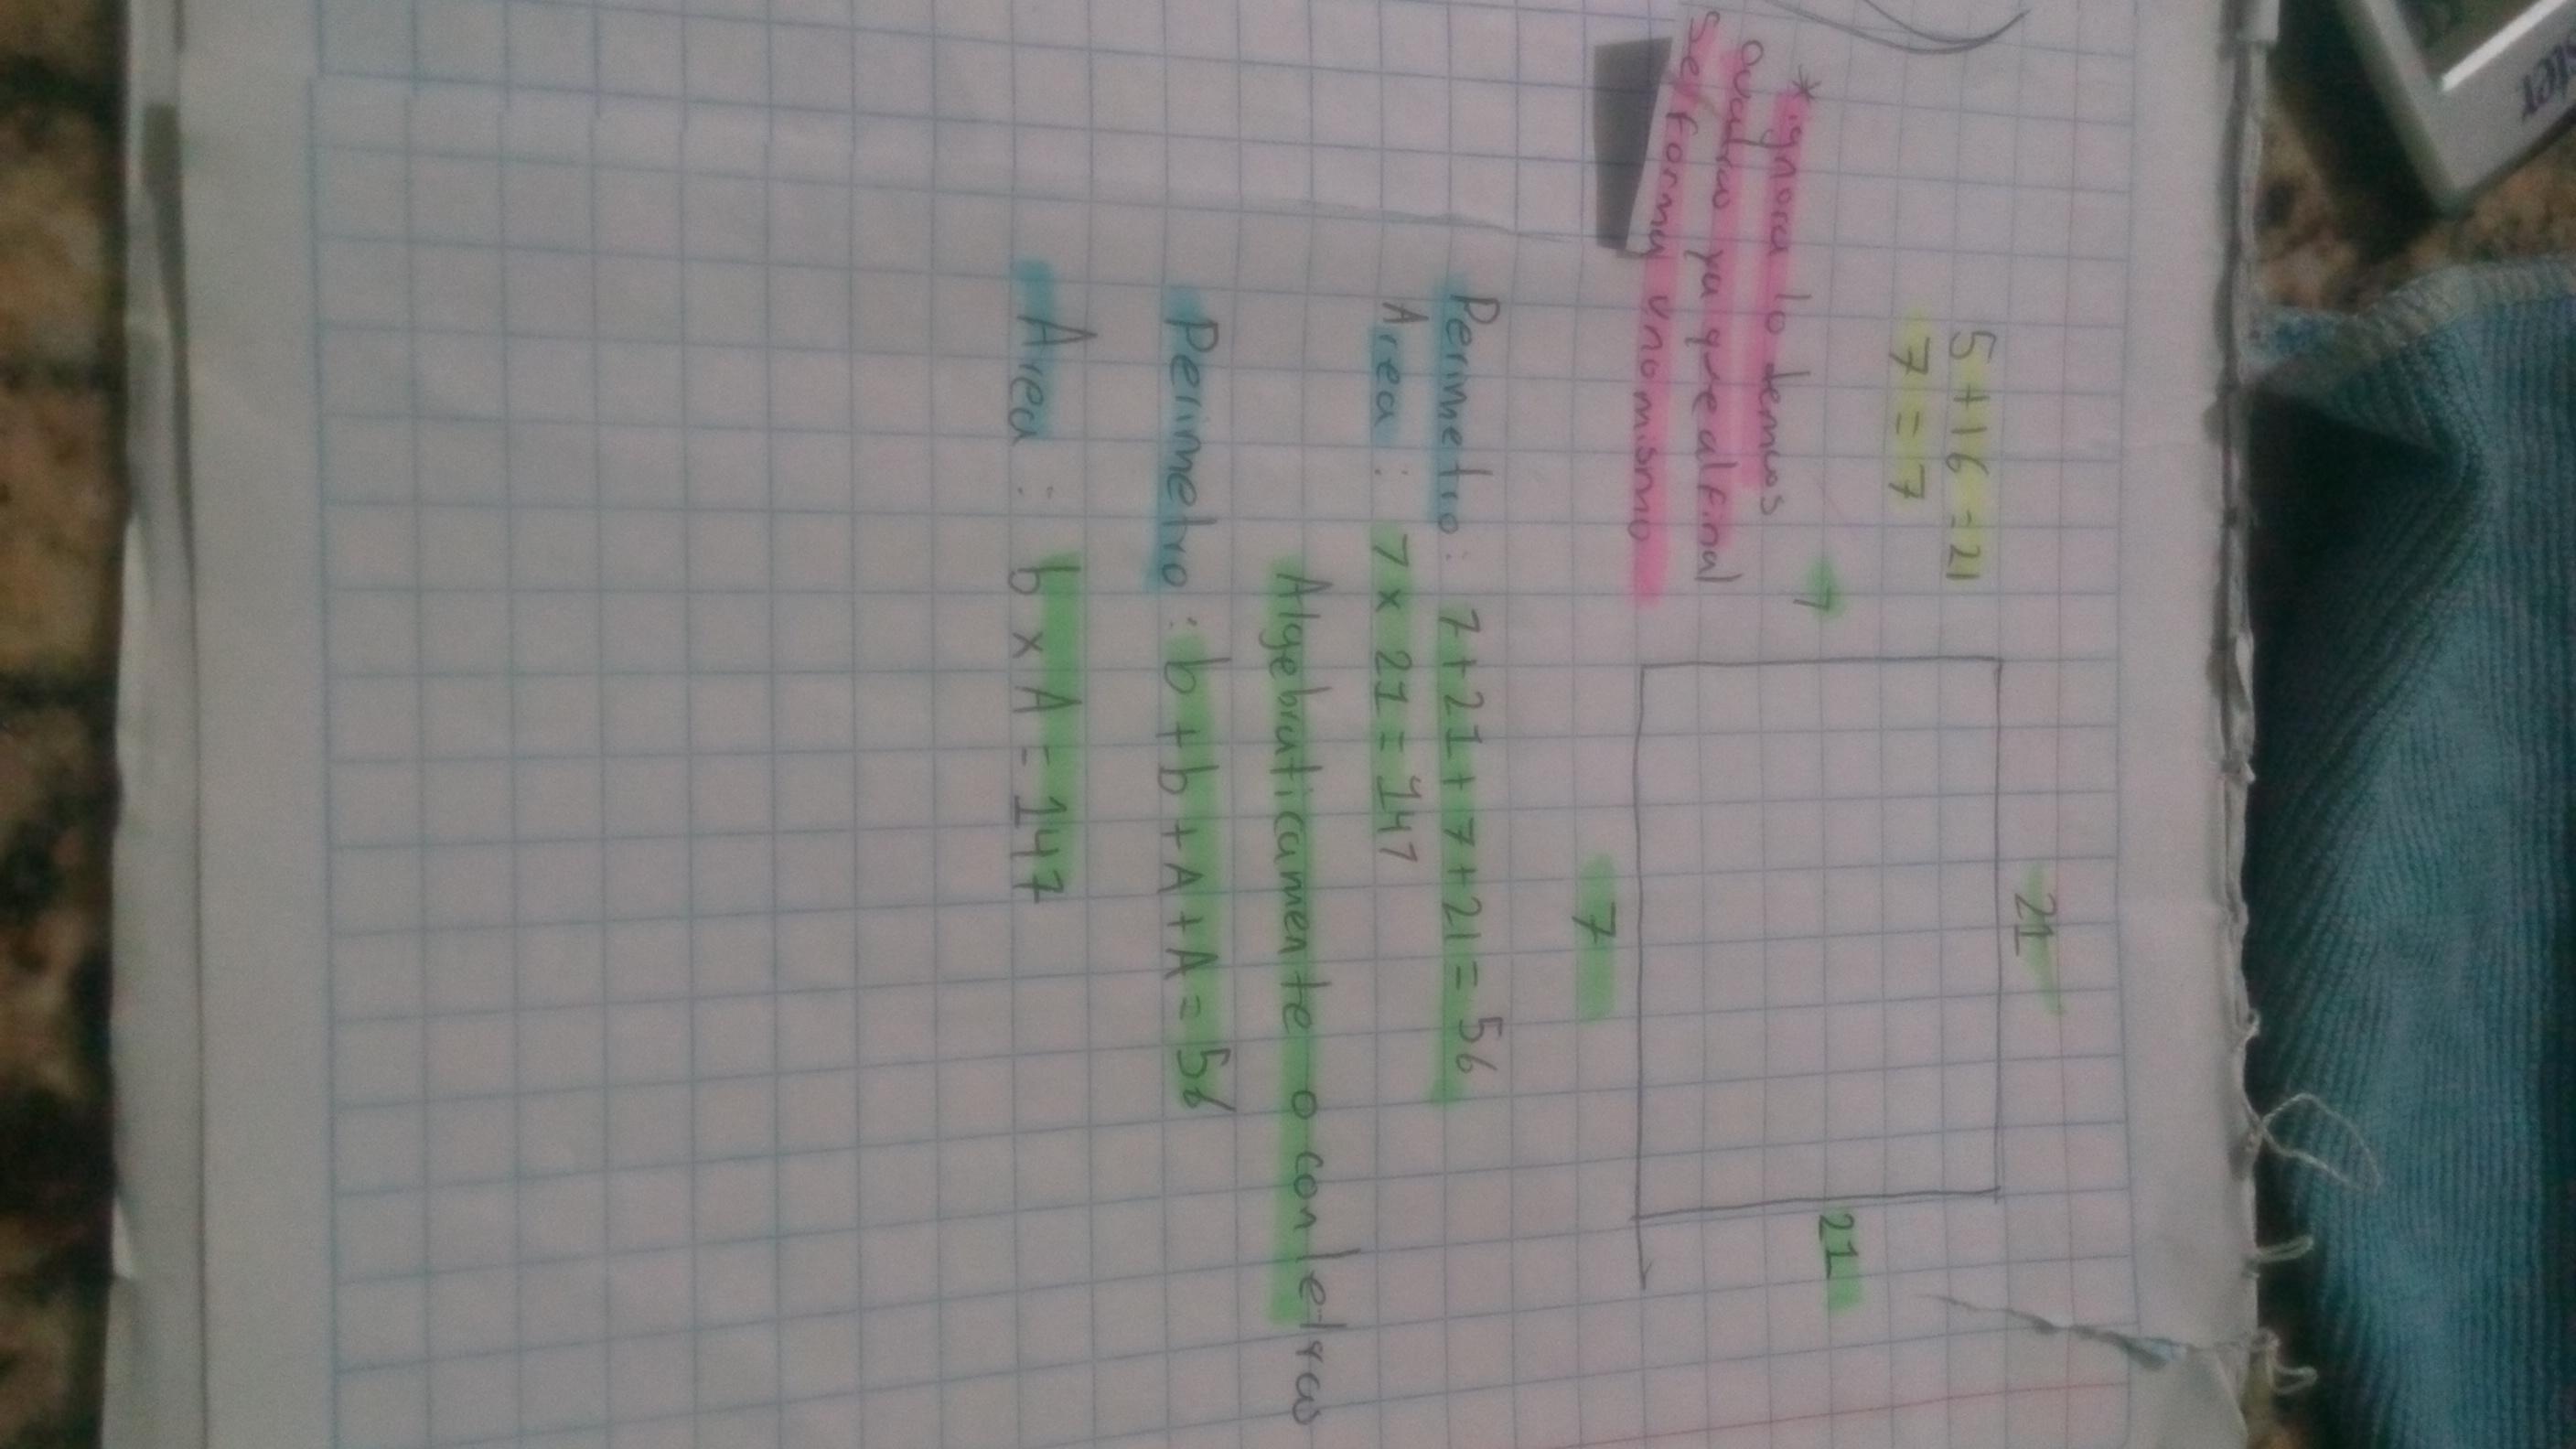 5+16=21
7=7
21
7
*ignora lo demas
cuadros ya que al final
se forma uno mismo
21
7
Perimetro: 7+21+7+21=56
Area: 7x21=147
Algebraticamente o con letras
Perimetro: b+b+A+A=56
Area: bxA=147